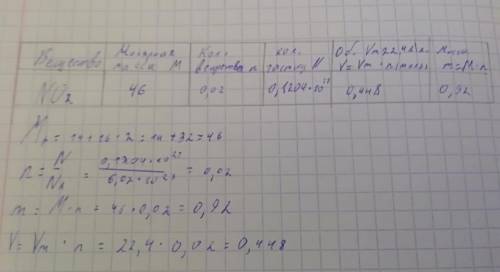 Вещество Молярная масса M Кол. вещества n кол. частиц N Об. Vm=22,4 л V=Vm · n Масса m=M·n
NO₂ 46 0,02 0,1204·10²³ 0,448 0,92
Mr = 14+16·2=14+32=46
n = N/Nₐ = 0,1204·10²³/6,02·10²³ = 0,02
m = M·n = 46·0,02 = 0,92
V = Vm · n = 22,4 · 0,02 = 0,448